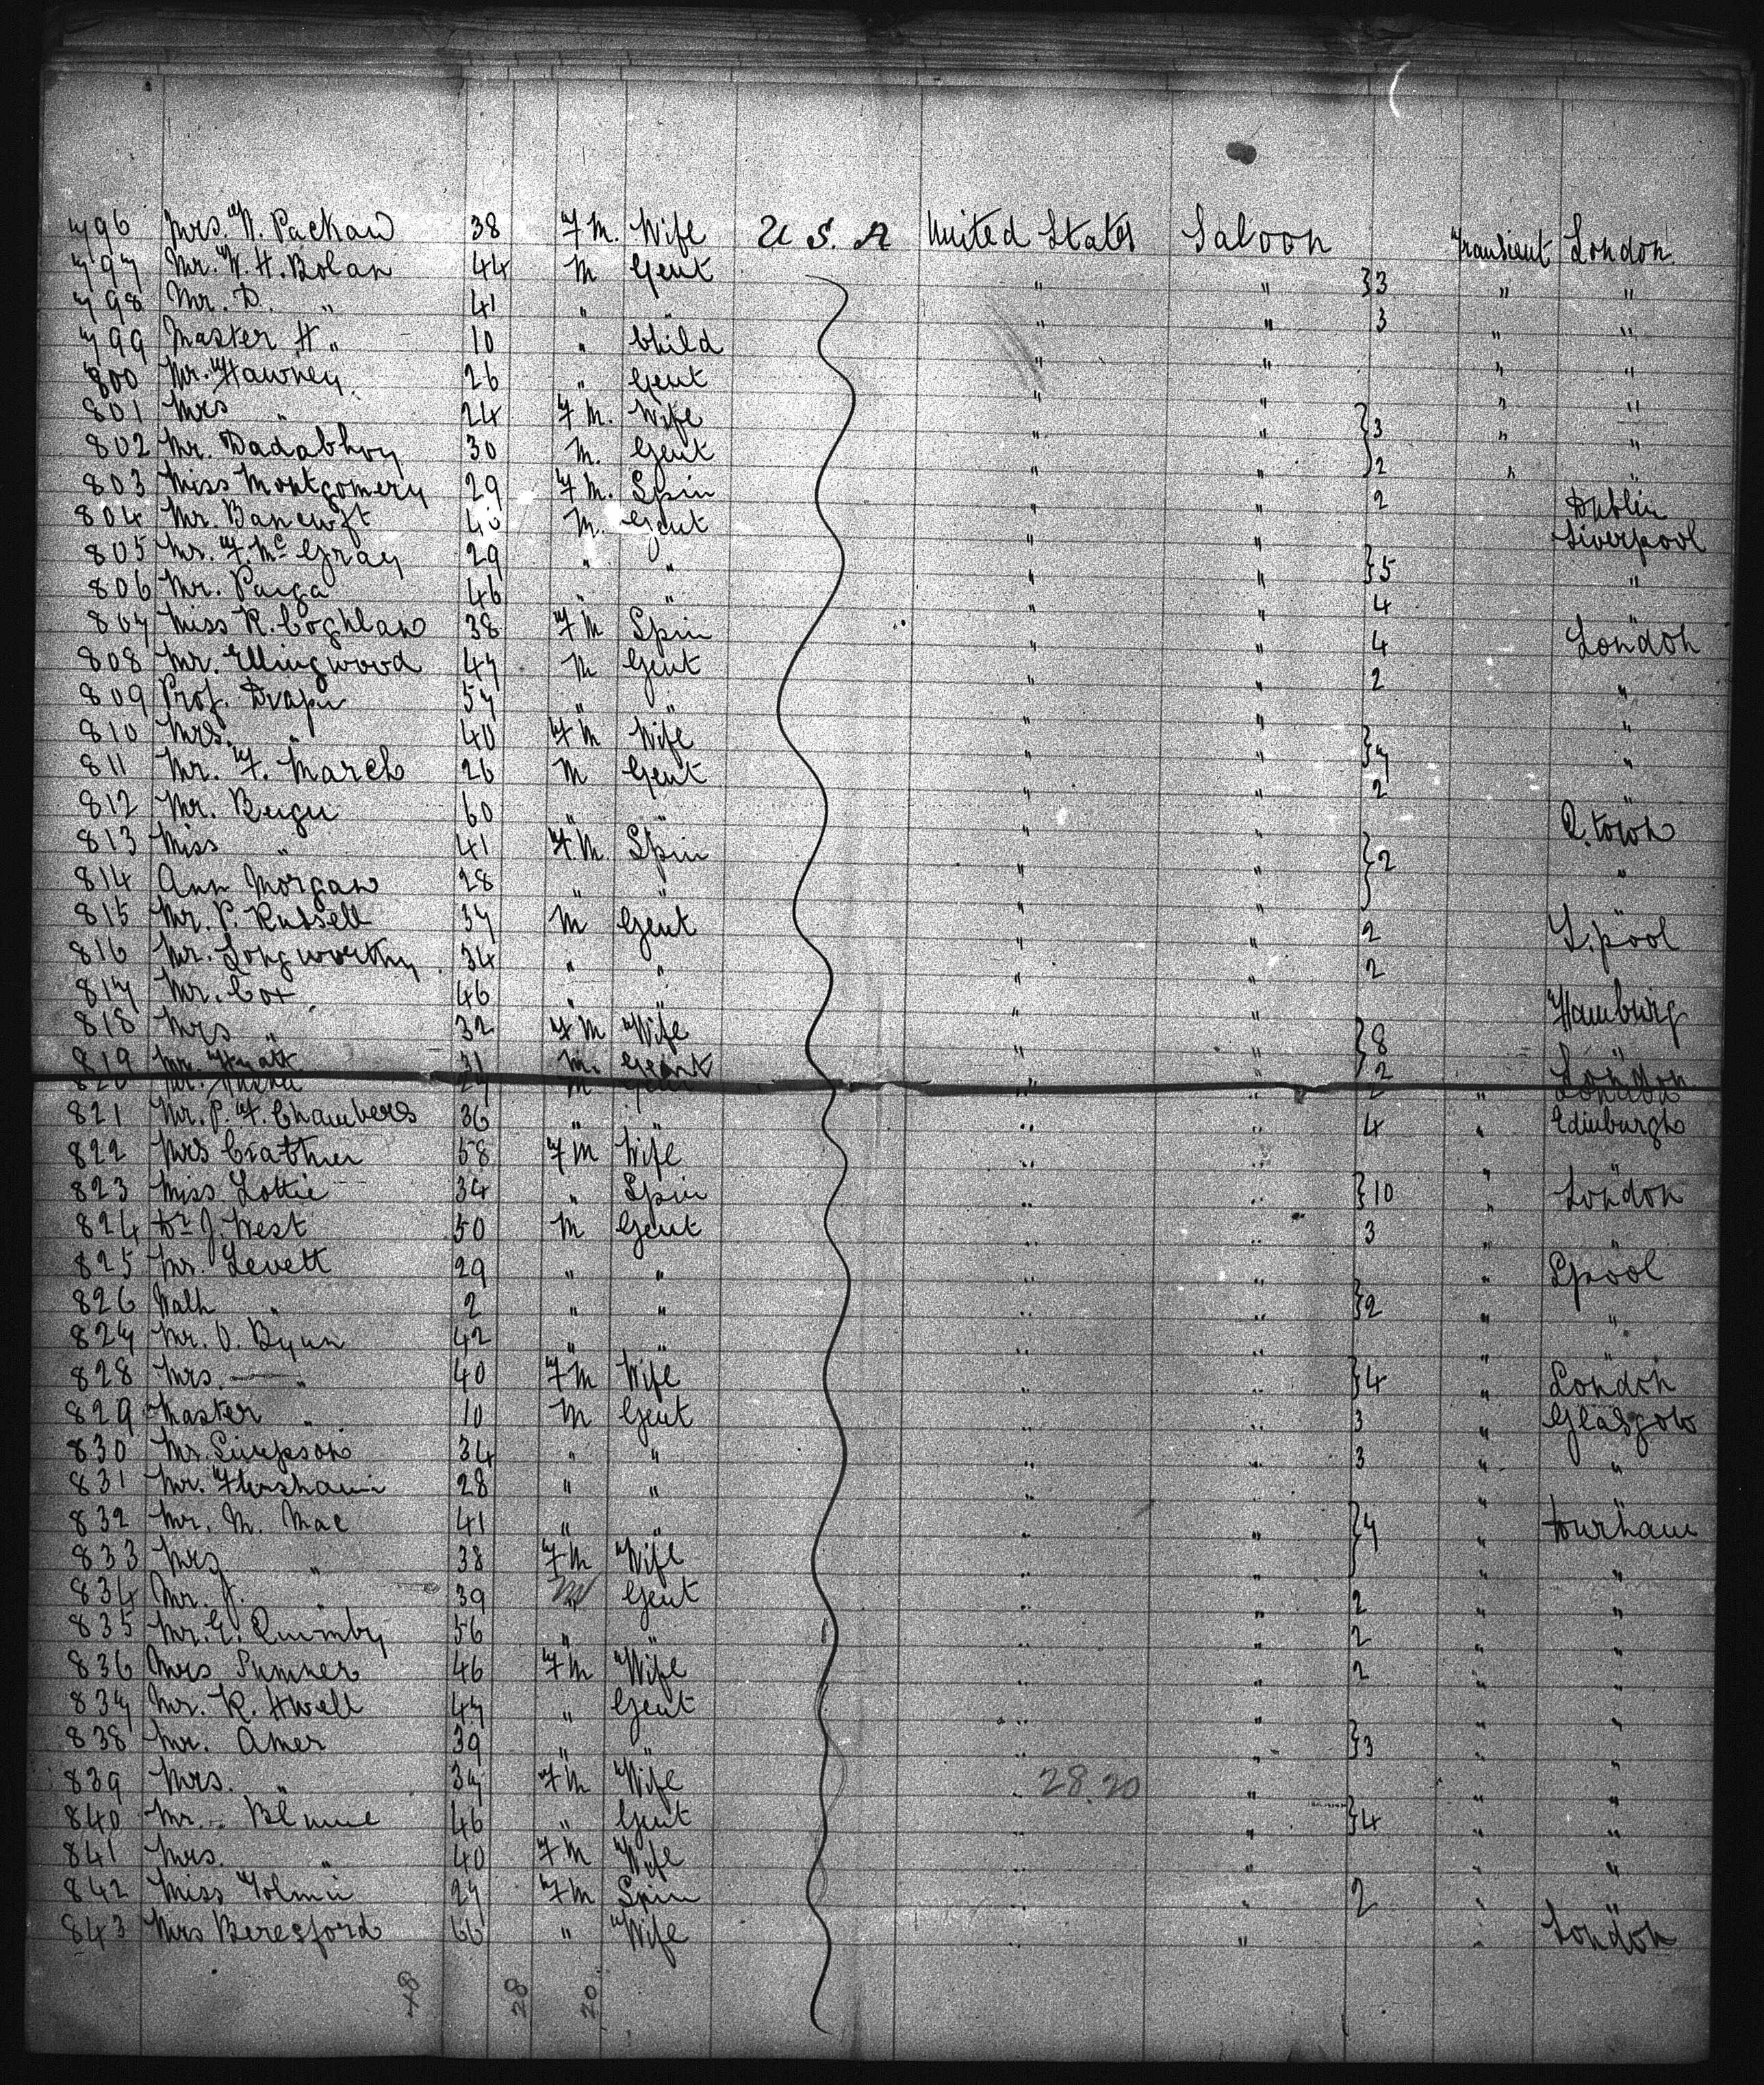 796 Mrs. W. Packard 38 FM. Wife U S. A United States Saloon Transient London
797 Mr. W. H. Bolan 44 M Gent " " }3 " "
798 Mr. D. " 41 " " " " 3 " "
799 Master H " 10 " Child " " " "
800 Mr. Hawney 26 " Gent " " " "
801 Mrs " 24 FM. Wife " " }3 " "
802 Mr. Dadabhoy 30 M. Gent " " 2 " "
803 Miss Montgomery 29 FM. Spin " 2 Dublin
804 Mr. Bancroft 40 M. Gent " " Liverpool
805 Mr. F. Mc Gray 29 " " " " }5 "
806 Mr. Paiga 46 " " " " 4 "
807 Miss R. Coghlan 38 FM Spin " " 4 London
808 Mr. Ellingwood 47 M Gent " " 2 "
809 Prof. Draper 57 " " " " "
810 Mrs. " 40 FM Wife " " }7 "
811 Mr. F. March 26 M Gent " " 2 "
812 Mr. 60 " " " " Q. town
813 Miss " 41 FM. Spin " " }2 "
814 Ann Morgan 28 " " " " "
815 Mr. P. Russell 37 M Gent " " 2 L.pool
816 Mr. Longworthy 34 " " " " 2
817 Mr. Cox 46 " " " " Hamburg
818 Mrs " 32 FM Wife " " }8 "
819 Mr. 31 M. Gent 2 London
820 Mr. M Gent " " 2 " London
821 Mr. P. F. Chambers 36 " " " " 4 " Edinburgh
822 Mrs 58 FM Wife " " " "
823 Miss Lottie 34 " Spin " " }10 " London
824 Dr J. West 50 M Gent " " 3 " "
825 Mr. Levett 29 " " " " " Lpool
826 Walh " 2 " " " " }2 " "
827 Mr. O. Byun 42 " " " " " "
828 Mrs. " 40 FM Wife " " }4 " London
829 Master " 10 M Gent " " 3 " Glasgow
830 Mr. Simpson 34 " " " " 3 " "
831 Mr. 28 " " " " " "
832 Mr. M. Mac 41 " " " " }7 " Dourham
833 Mrs " 38 FM Wife " " " "
834 Mr. J. " 39 M Gent " " 2 " "
835 Mr. E. Quimby 56 " " " " 2 " "
836 Mrs Sumner 46 FM Wife " " 2 " "
837 Mr. R. Hwell 47 " Gent " " " "
838 Mr. Amer 39 " " " " }3 " "
839 Mrs. " 37 FM Wife " 28.20 " " "
840 Mr. Blume 46 " Gent " }4 " "
841 Mrs. " 40 FM Wife " " " "
842 Miss Tolmie 27 FM Spin " " 2 " "
843 Mrs Beresford 66 " Wife " " " London
48 28 20